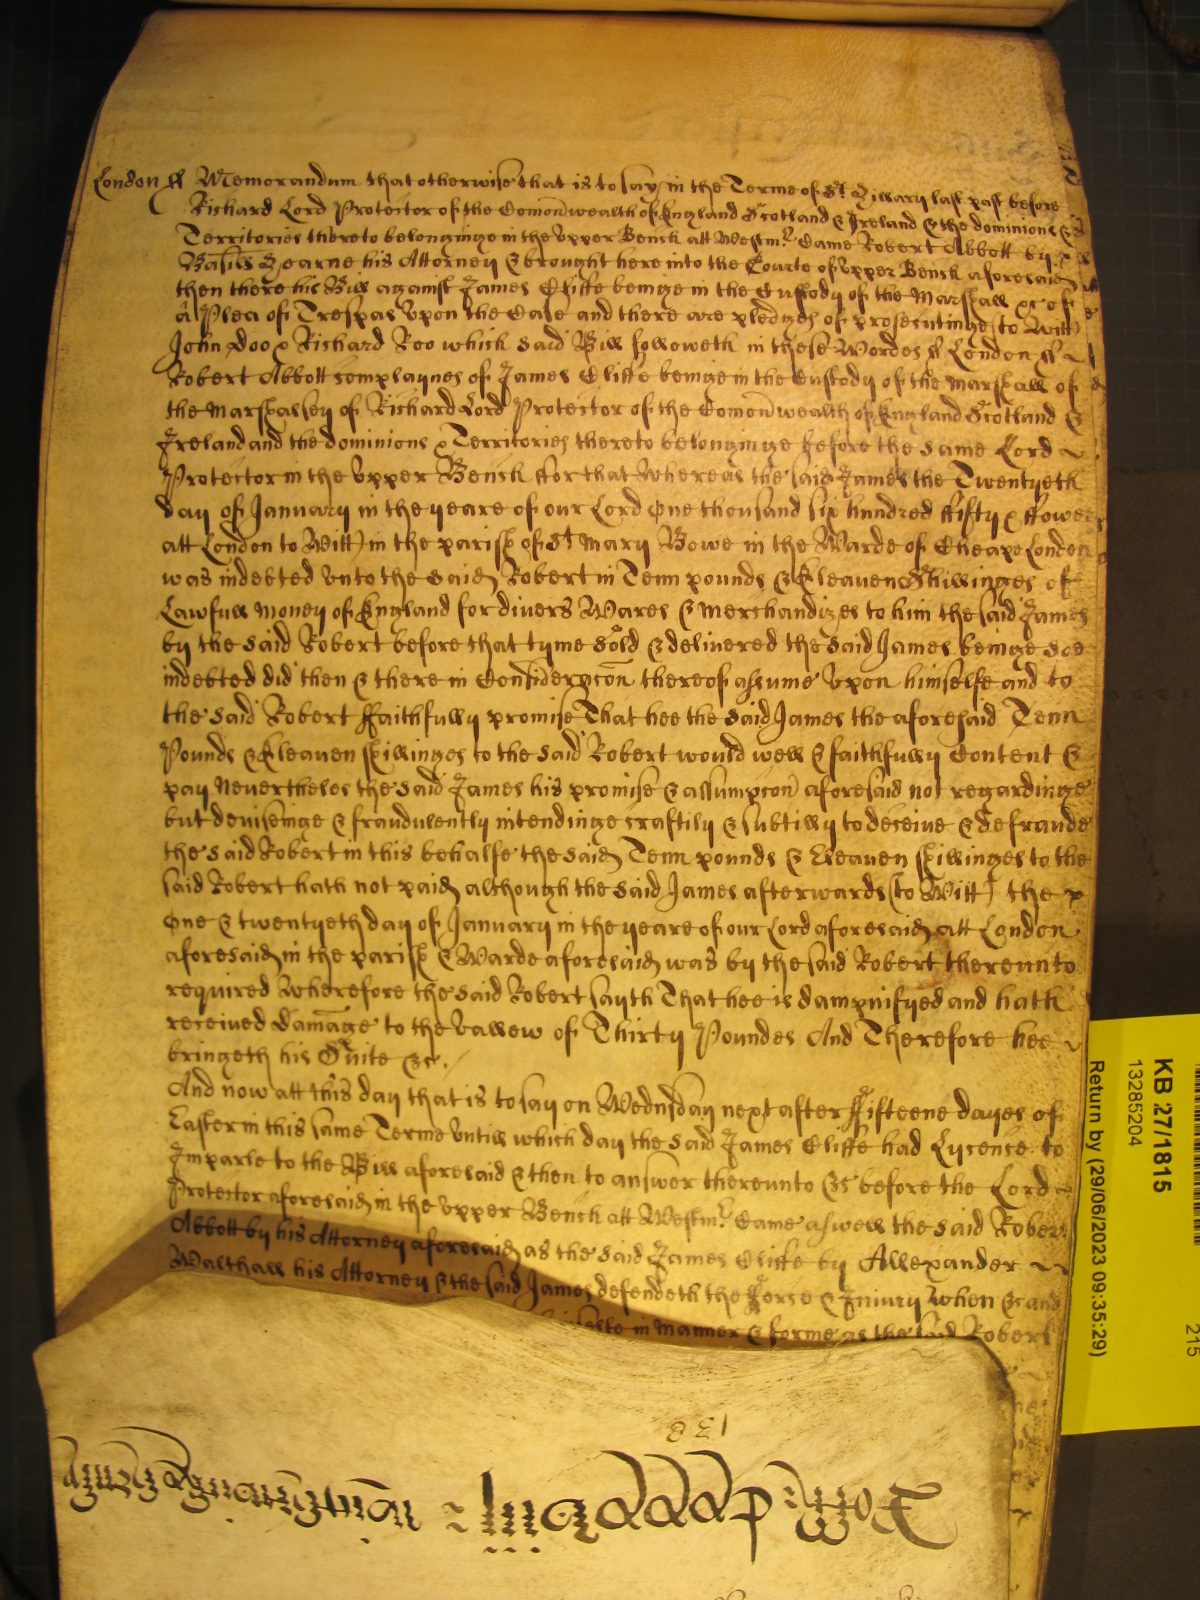 London ss Memorandum that otherwise that is to say in the Terme of St Hillary last past before
Richard Lord Protector of the Comonwealth of England Scotland & Ireland & the dominions &
Territories thereto belonginge in the Upper Bench att Westmr Came Robert Abbott by
Basill Hearne his Attorney & brought here into the Courte of Upper Bench aforesaid
then there his Bill against James Cliffe beinge in the Custody of the Marshall &c of
a Plea of Trespas Upon the Case and there are pledges of prosecutinge (to Witt)
John Doo & Richard Roo which said Bill followeth in these Wordes ss London ss
Robert Abbott complaynes of James Cliffe beinge in the Custody of the Marshall of
the Marshalsey of Richard Lord Protector of the Comonwealth of England Scotland &
Ireland and the dominions & Territories thereto belonginge before the same Lord
Protector in the Upper Bench ffor that Whereas the said James the Twentyeth
day of January in the yeare of our Lord One thousand six hundred ffifty & ffower
att London (to Witt) in the parish of St Mary Bowe in the Warde of Cheape London
was indebted unto the said Robert in Tenn pounds & Eleaven Shillinges of
Lawfull money of England for divers Wares & Merchandizes to him the said James
by the said Robert before that tyme sold & delivered the said James beinge soe
indebted did then & there in Consideracon thereof assume upon himselfe and to
the said Robert ffaithfully promise That hee the said James the aforesaid Tenn
Pounds & Eleaven shillinges to the said Robert would well & faithfully Content &
pay Nevertheles the said James his promise & assumpcon aforesaid not regardinge
but deviseinge & fraudulently intendinge craftily & subtilly to deceive & defraude
the said Robert in this behalfe the said Tenn pounds & Eleaven shillinges to the
said Robert hath not paid although the said James afterwards (to Witt) the
One & twentyeth day of January in the yeare of our Lord aforesaid att London
aforesaid in the parish & Warde aforesaid was by the said Robert thereunto
required Wherefore the said Robert sayth That hee is dampnifyed and hath
received damage to the vallew of Thirty Poundes And Therefore hee
bringeth his Suite &c.
And now att this day that is to say on Wednsday next after ffifteene dayes of
Easter in this same Terme untill which day the said James Cliffe had Lycense to
Imparle to the Bill aforesaid & then to answer thereunto &c before the Lord
Protector aforesaid in the Upper Bench att Westmr Came aswell the said Robert
Abbott by his Attorney aforesaid as the said James Cliffe by Allexander
Walthall his Attorney & the said James defendeth the fforce & Iniury When &c and
in Manner & forme as the said Robert
138
KB 27/1815
13285204
Return by (29/06/2023 09:35:29)
215